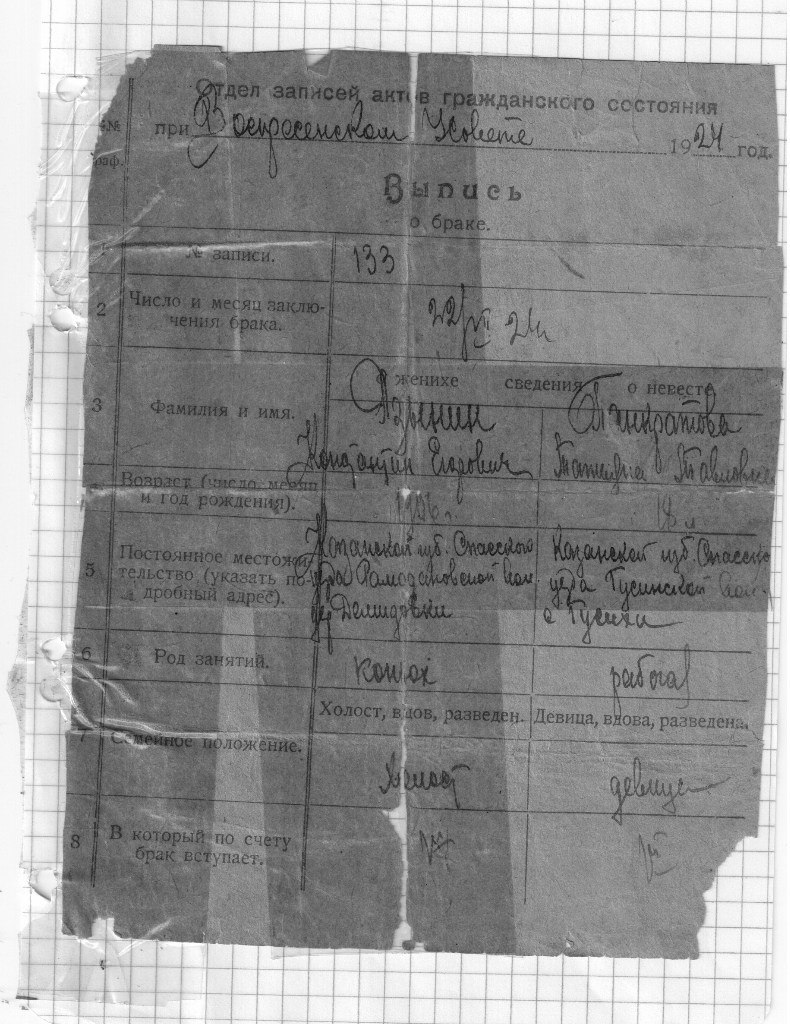 Отдел записей актов гражданского состояния
при Воскресенском Усовете 1924 год.
№
раф.
Выпись
о браке.
№ записи. 133
2 Число и месяц заклю-
чения брака. 22/VII 24
о женихе сведения о невесте
3 Фамилия и имя. Языкин Панкратова
Константин Егорович Татьяна Павловна
Возраст (число, месяц
и год рождения). 1906 г. 18 л
5 Постоянное местожи-
тельство (указать по-
дробный адрес).
Казанской губ. Спасского
уезда Рамодановской вол.
дер Демидовки
Казанской губ. Спасско
уезда Гусинской вол.
с Гусиха
6 Род занятий. конюх работа
Холост, вдов, разведен. Девица, вдова, разведена.
7 Семейное положение. Холост девица
8 В который по счету
брак вступает.